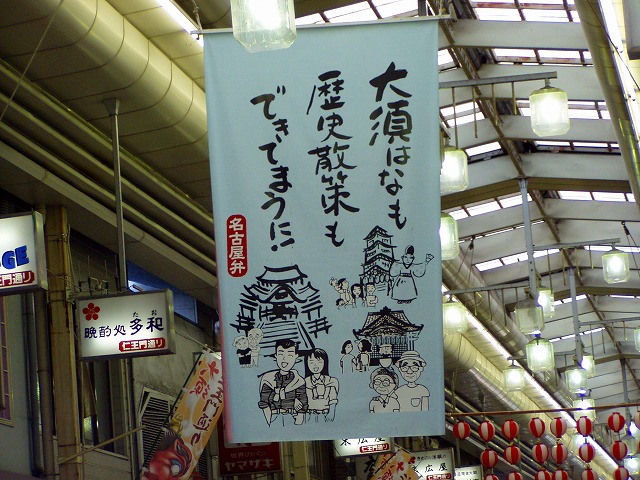 大須はなも
歴史散策も
できてまうに!
名古屋弁
GE
仁王門通り
たお
晩酌処 多和
仁王門通り
ヤマサキ
末広屋